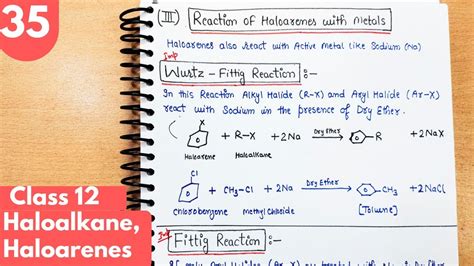 35
(III) Reaction of Haloarenes with Metals
Haloarenes also react with Active Metal like Sodium (Na)
Imp
Wurtz - Fittig Reaction :-
In this Reaction Alkyl Halide (R-X) and Aryl Halide (Ar-X)
react with Sodium in the presence of Dry Ether.
X + R-X + 2Na Dry Ether R + 2NaX
Haloarene Haloalkane
Cl + CH3-Cl + 2Na Dry Ether CH3 + 2NaCl
Chlorobenzene Methyl Chloride [Toluene]
Imp
Fittig Reaction :-
Class 12
Haloalkane,
Haloarenes